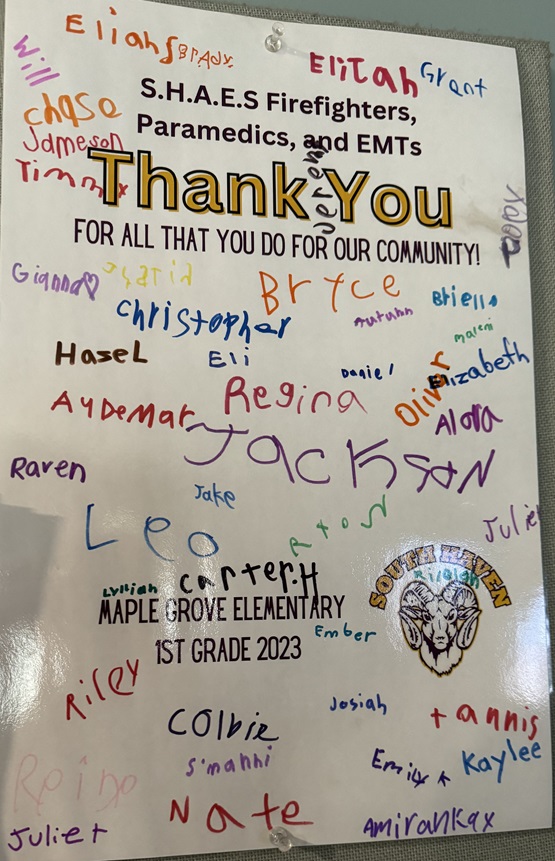 Eliahs
Brady
Elitah
Grant
Will
S.H.A.E.S Firefighters,
chase
Paramedics, and EMTs
Jameson
Timmy
Thank You
FOR ALL THAT YOU DO FOR OUR COMMUNITY!
Gianna
Bryce
Briella
Christopher
Autumn
Maleni
Hasel
Eli
Daniel
Elizabeth
Oliver
AyDemar
Regina
Alora
JACKSON
Raven
Jake
Leo
Juliet
SOUTH HAVEN
carter.H
Lyllian
MAPLE GROVE ELEMENTARY
Ember
1ST GRADE 2023
Riley
Josiah
COlbie
tannis
S'mahni
Kaylee
Emily K
Nate
Juliet
Amirahkax